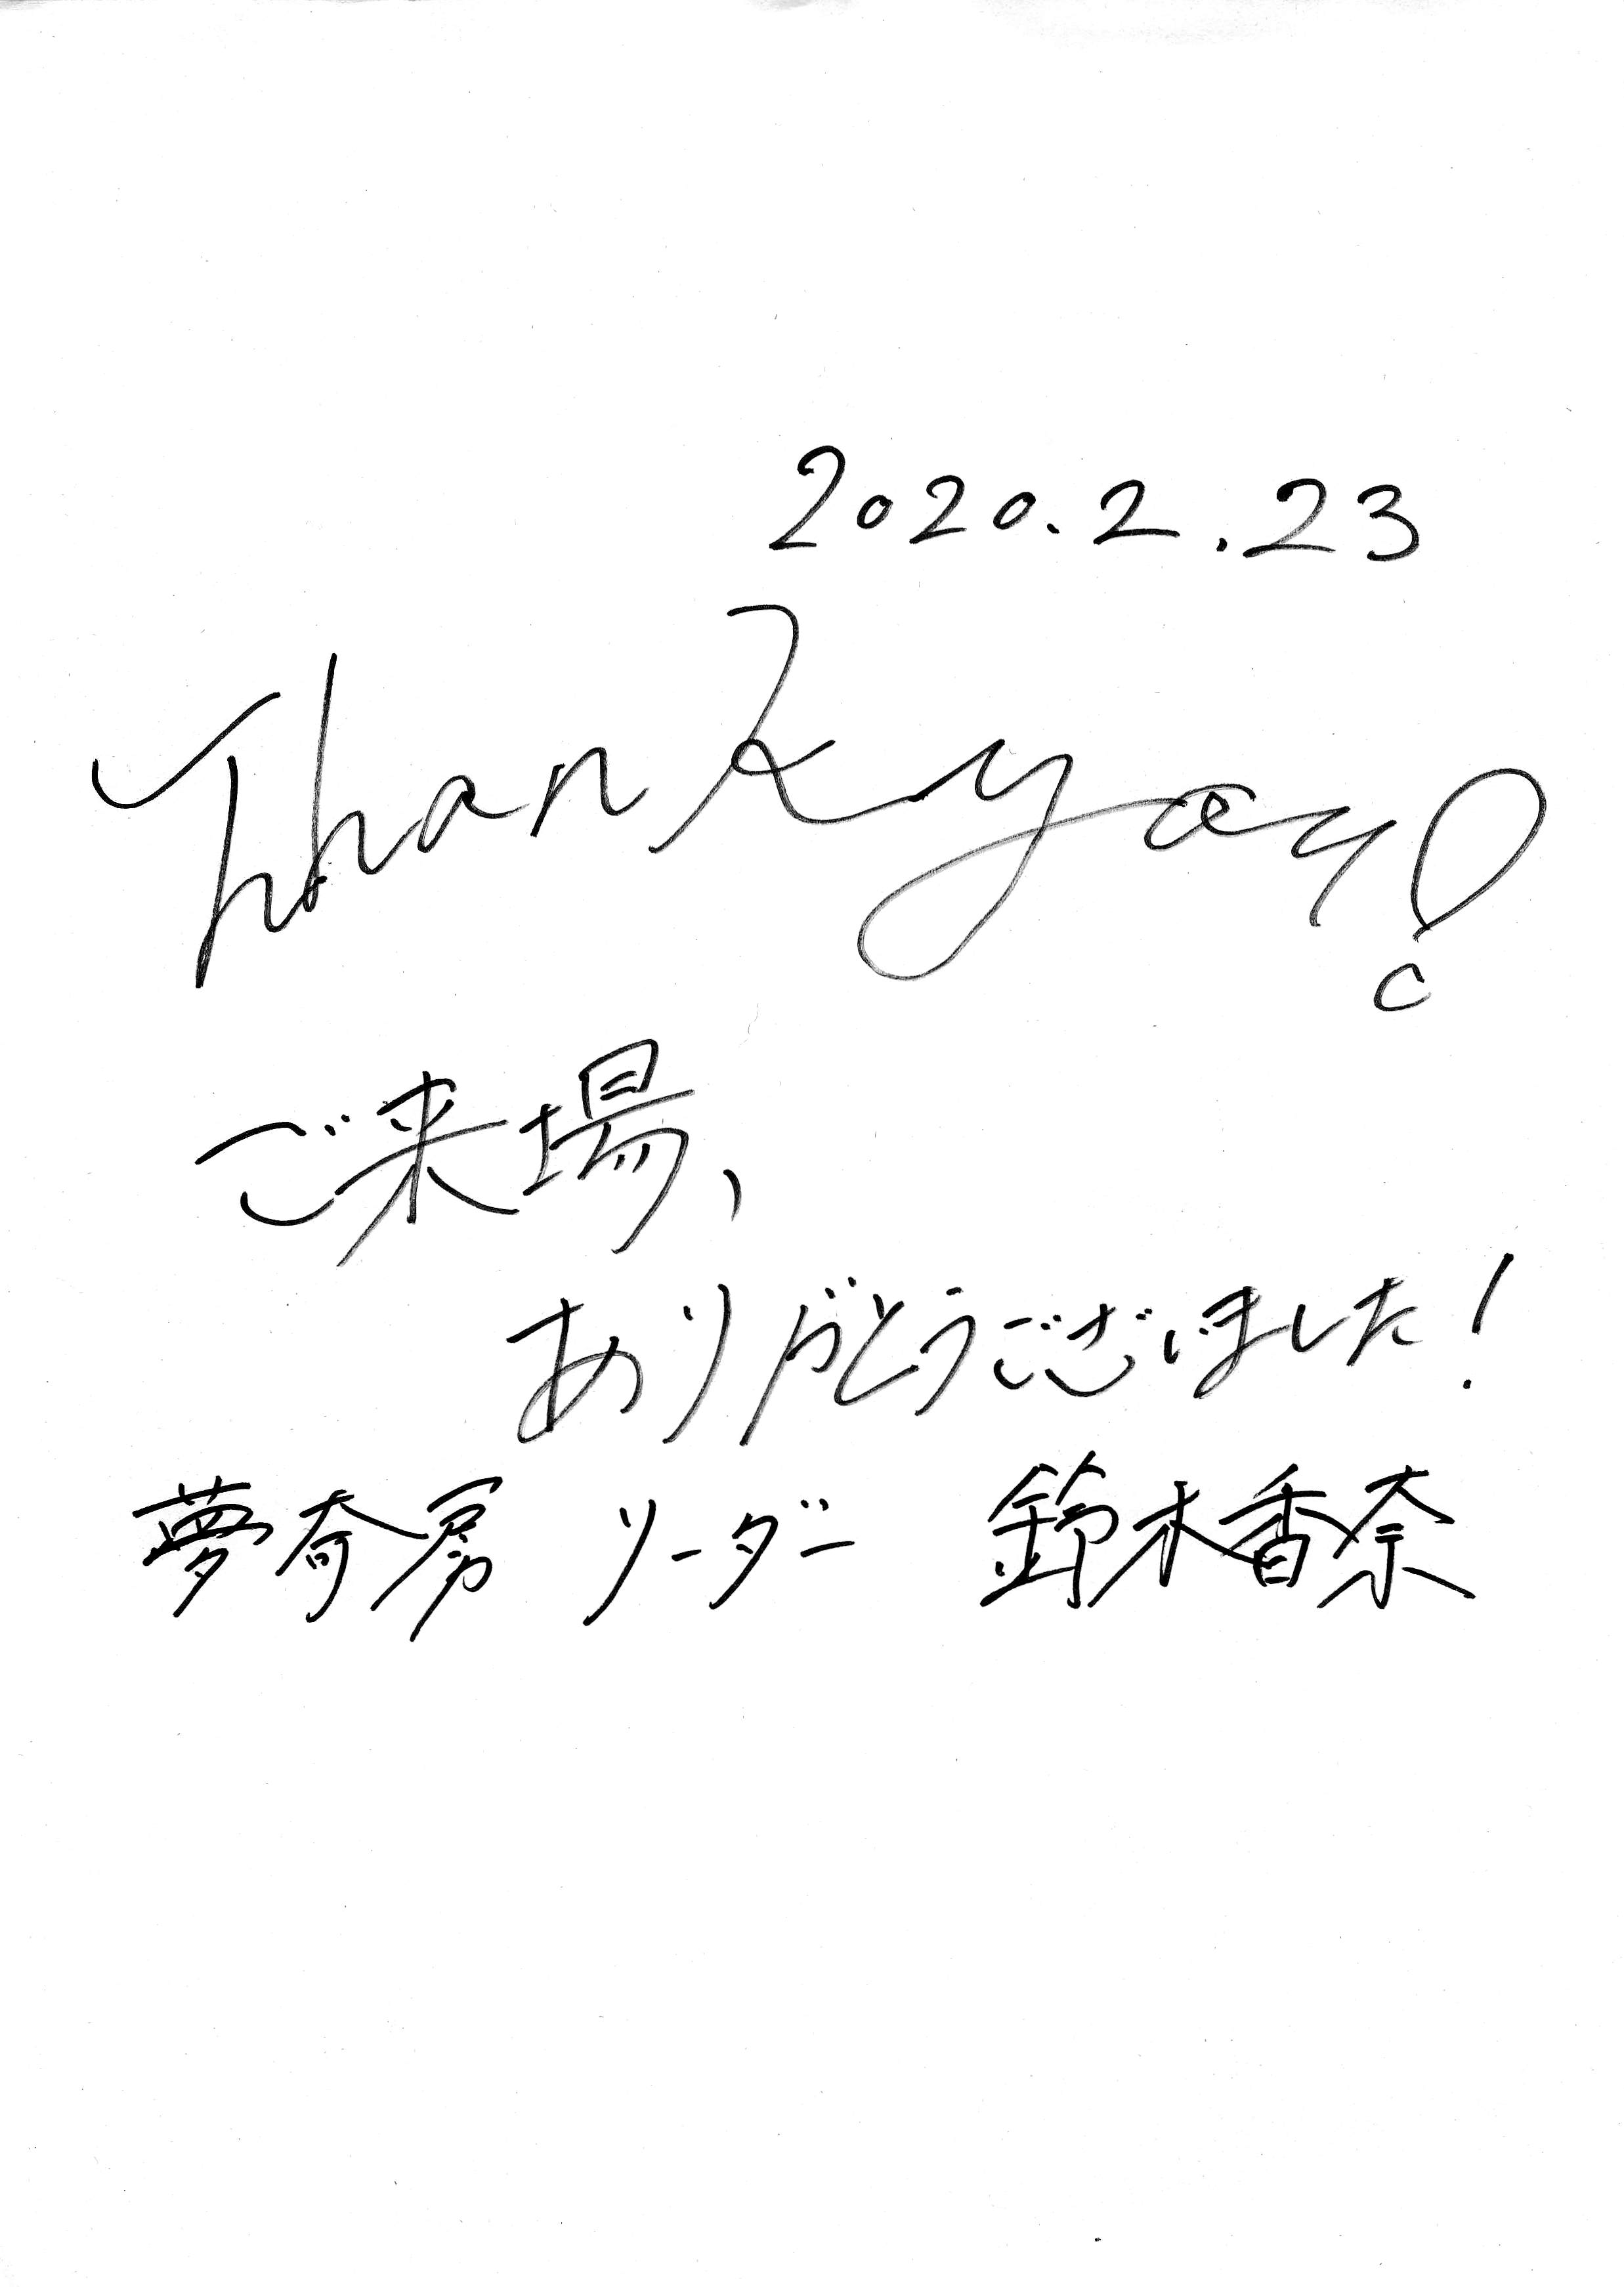 2020.2.23
Thank you!
ご来場、
ありがとうございました！
夢奇房 リーダー 鈴木香奈